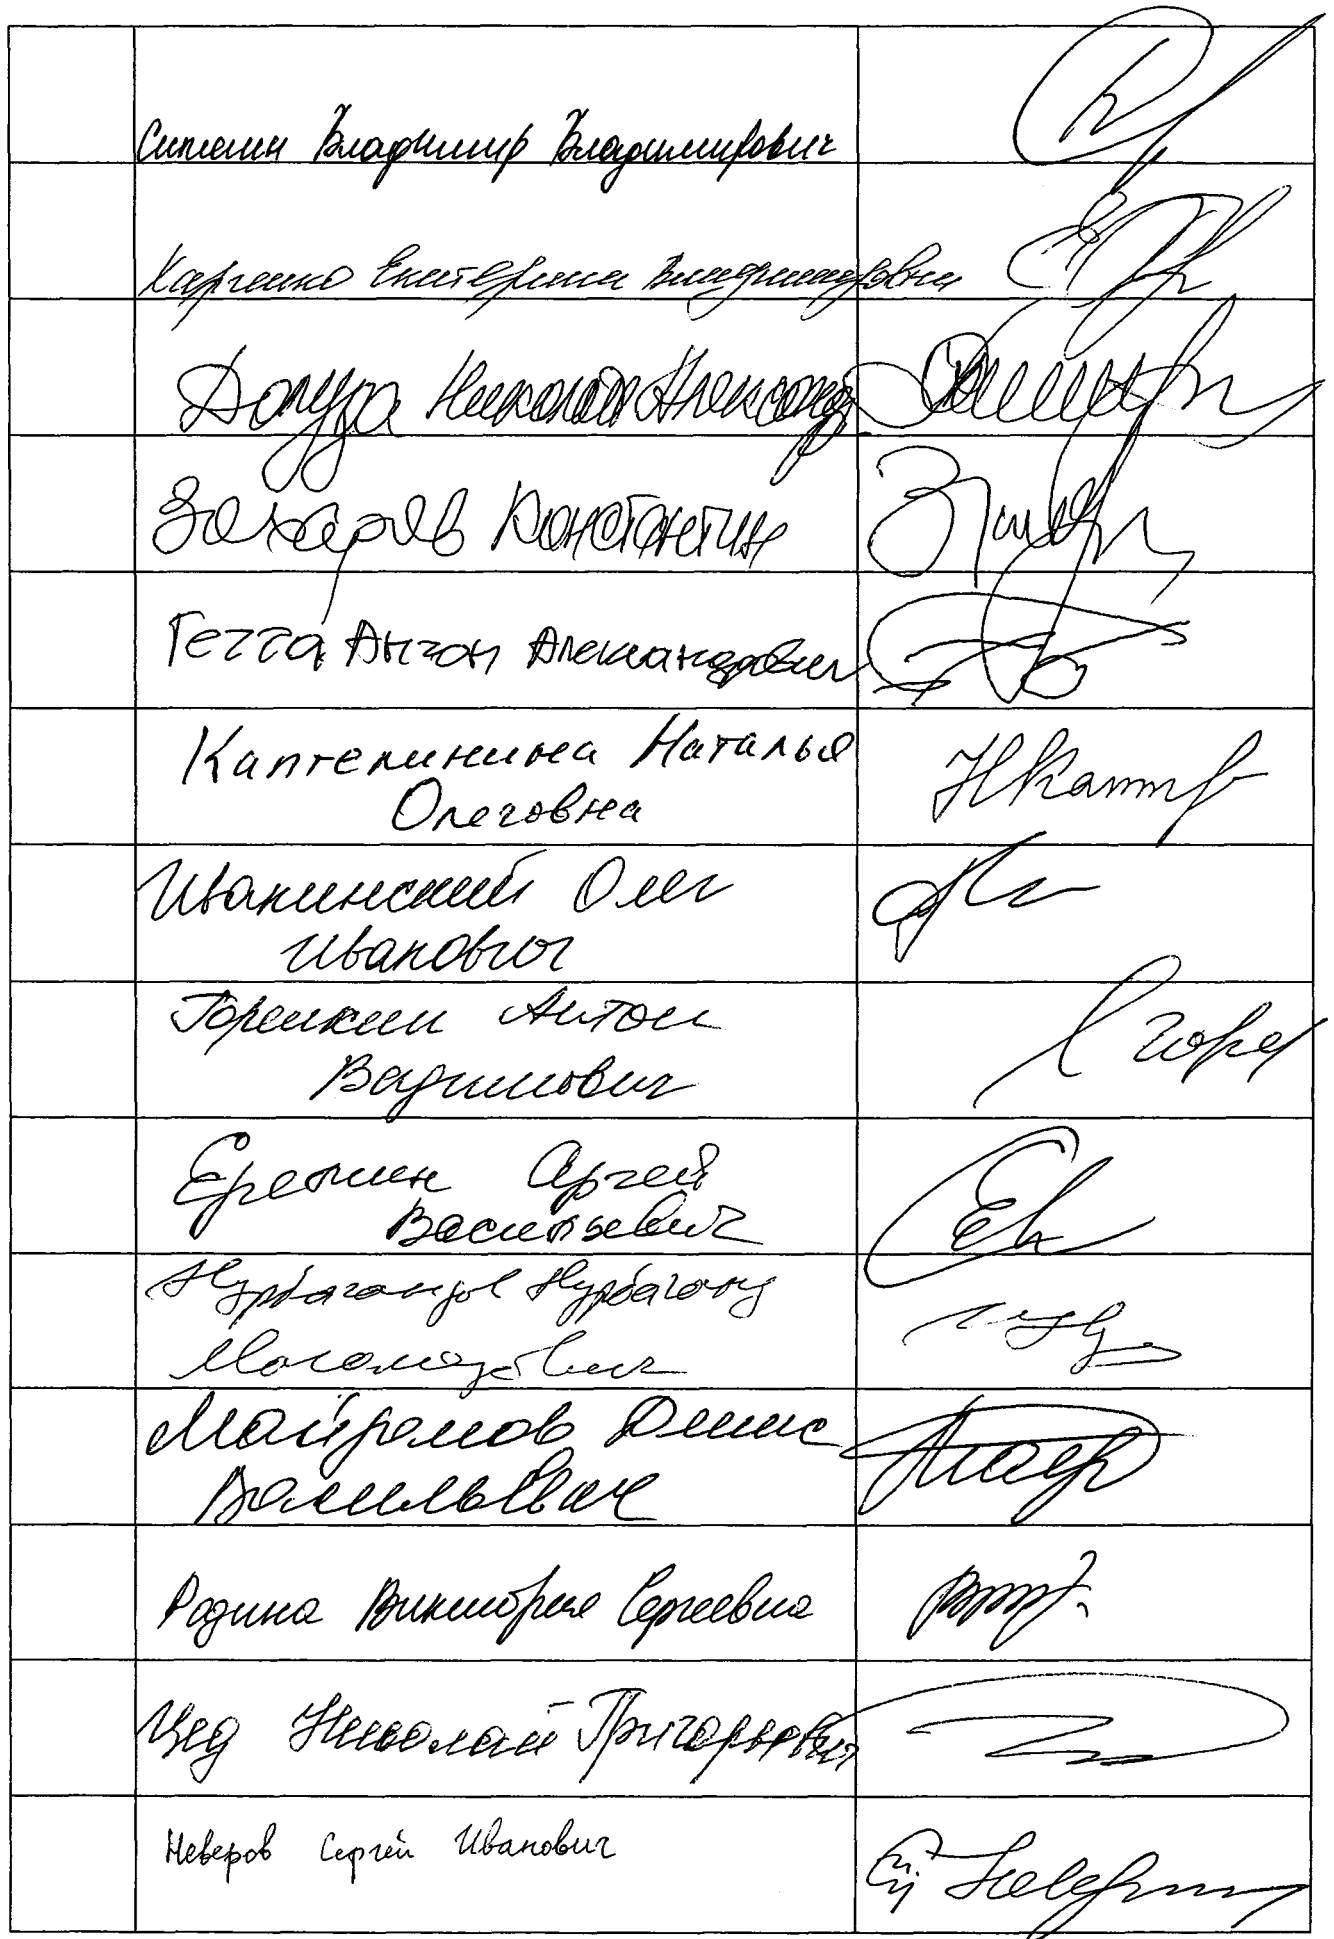 Сипягин Владимир Владимирович
Харченко Екатерина Владимировна
Долуда Николай Александр
Захаров Константин
Гетта Антон Александрович
Каптелинина Наталья
Олеговна
Иванинский Олег
Иванович
Горелкин Антон
Вадимович
Еремин Сергей
Васильевич
Нурбагандов Нурбаганд
Магомедович
Майдanов Денис
Васильевич
Родина Виктория Сергеевна
Цед Николай Григорьевич
Неверов Сергей Иванович